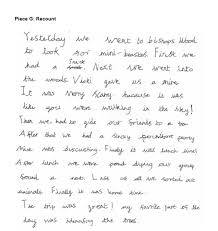 Piece G: Recount
Yesterday we went to bishops Wood
to look for mini-beasts. First we
had a snack. Next we went into
the woods. Vicki gave us a mine
It was very scary because it was
like you were walking in the sky!
Then we had to give our friends to a
After that we had a
was discussing. Finally it was lunch time!
After lunch we went pond diping our group
found a newt. Last of all we sorted out
animals. Finally it was home time.
The trip was great! my favorite part of the
day was the trees.